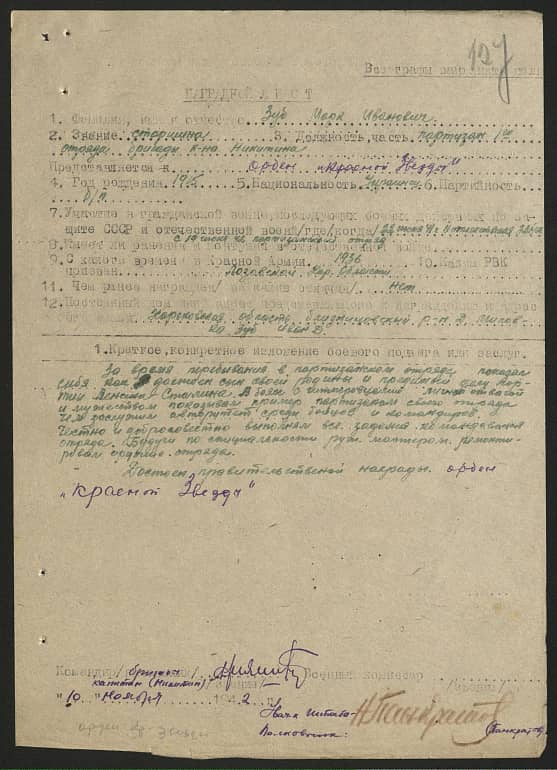 127
НАГРАДНОЙ ЛИСТ
1. Фамилия, имя и отчество Зуб Марк Иванович
2. Звание старшина 3. Должность, часть партизан 1го
отряда бригады к-на Никитина
Представляется к орден "Красной Звезды"
4. Год рождения 5. Национальность 6. Партийность
б/п
7. Участие в гражданской войне, последующих боевых действиях по за-
щите СССР и отечественной войны /где, когда/
с 19 июня 42 партизанском отряд
8. Имеет ли ранения и контузии в отечественной войне
9. С какого времени в Красной Армии 1936 10. Каким РВК
призван Лозовской Хар. области
11. Чем ранее награжден /за какие отличия/ нет
12. Постоянный
Харьковская область Близнецовский р-н
Зуб Иван
1. Краткое, конкретное изложение боевого подвига или заслуг.
За время пребывания в партизанском отряде показал
себя как достоен сын своей родины и преданный делу пар-
тии Ленина Сталина. В боях с личной отвагой
и мужеством показывал пример партизанам своего отряда
чем заслужил авторитет среди бойцов и командиров.
Честно и добросовестно выполнял все задания командования
отряда. Будучи по специальности руж. монтером, ремонти-
ровал оружие отряда.
Достоен правительственной награды орден
"Красной Звезды"
Командир бригады Военный комиссар
капитан (Никитин)
"10" ноября 1942 г.
Нач. штаба
Полковник: (Панкратов)